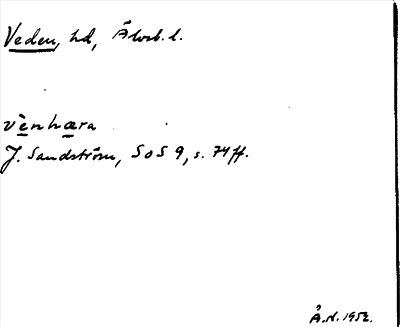 Veden, hd, Älvsb. l.
vènhæra
J. Sandström, SoS 9, s. 74 ff.
Å.N. 1952.